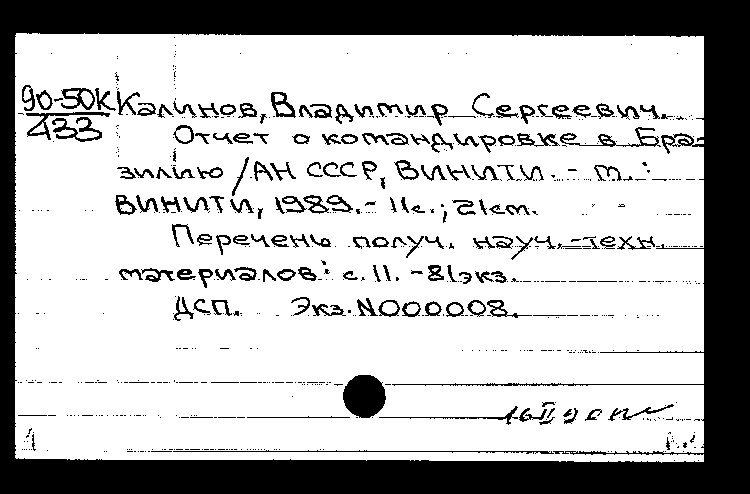 90-50К Калинов, Владимир Сергеевич.
433 Отчет о командировке в Бра-
зилию / АН СССР, ВИНИТИ. - М. :
ВИНИТИ, 1989. - 11с. ; 21см.
Перечень получ. науч.-техн.
материалов: с. 11. - 81экз.
ДСП. Экз. N000008.
16 II 90
1